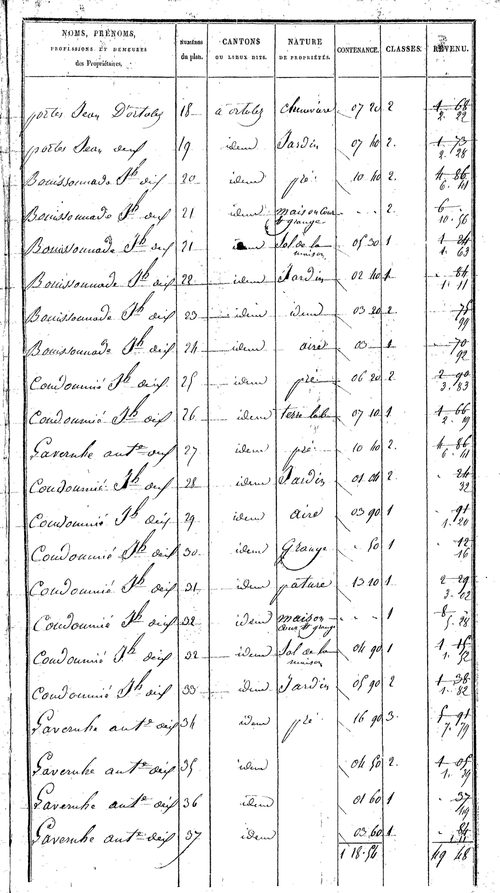 NOMS, PRÉNOMS, PROFESSIONS ET DEMEURES des Propriétaires. Numéros du plan. CANTONS OU LIEUX DITS. NATURE DE PROPRIÉTÉS. CONTENANCE. CLASSES. REVENU.
portes Jean D'ortoles 18 a ortoles 07 20 2 1 68
2. 22
portes Jean deuf 19 idem Jardin 07 40 2. 1 73
2. 28
Bouissonnade Jh deuf 20 idem pré 10 40 2. 4 86
6. 41
Bouissonnade Jh deuf 21 idem maison cour et grange - - 2 6 -
10. 56
Bouissonnade Jh deuf 21 idem Sol de la maison 05 30 1 1 24
1. 63
Bouissonnade Jh deuf 22 idem Jardin 02 40 1 - 84
1. 11
Bouissonnade Jh deuf 23 idem idem 03 20 2 75
99
Bouissonnade Jh deuf 24 idem aire 03 - 1 70
92
Condoumié Jh deuf 25 idem pré 06 20 2 2 90
3. 83
Condoumié Jh deuf 26 idem terre lab 07 10 1 1 66
2. 19
Gavernhe ante deuf 27 idem pré 10 40 2. 4 86
6. 41
Condoumié Jh deuf 28 idem Jardin 01 04 2 24
32
Condoumié Jh deuf 29 idem aire 03 90 1 - 91
1. 20
Condoumié Jh deuf 30 idem Grange - 50 1 - 12
16
Condoumié Jh deuf 31 idem pature 13 20 1 2 29
3. 02
Condoumié Jh deuf 32 idem maison cour et grange - - 1 -
5. 28
Condoumié Jh deuf 32 idem Sol de la maison 04 90 1 1 15
1. 52
Condoumié Jh deuf 33 idem Jardin 05 90 2 1 38
1. 82
Gavernhe ante deuf 34 idem pré 16 90 3. 5 91
7. 79
Gavernhe ante deuf 35 idem 04 50 2. 1 05
1. 39
Gavernhe ante deuf 36 idem 01 60 1 - 37
49
Gavernhe ante deuf 37 idem 03 60 1 - 84
1 18. 54 49 48